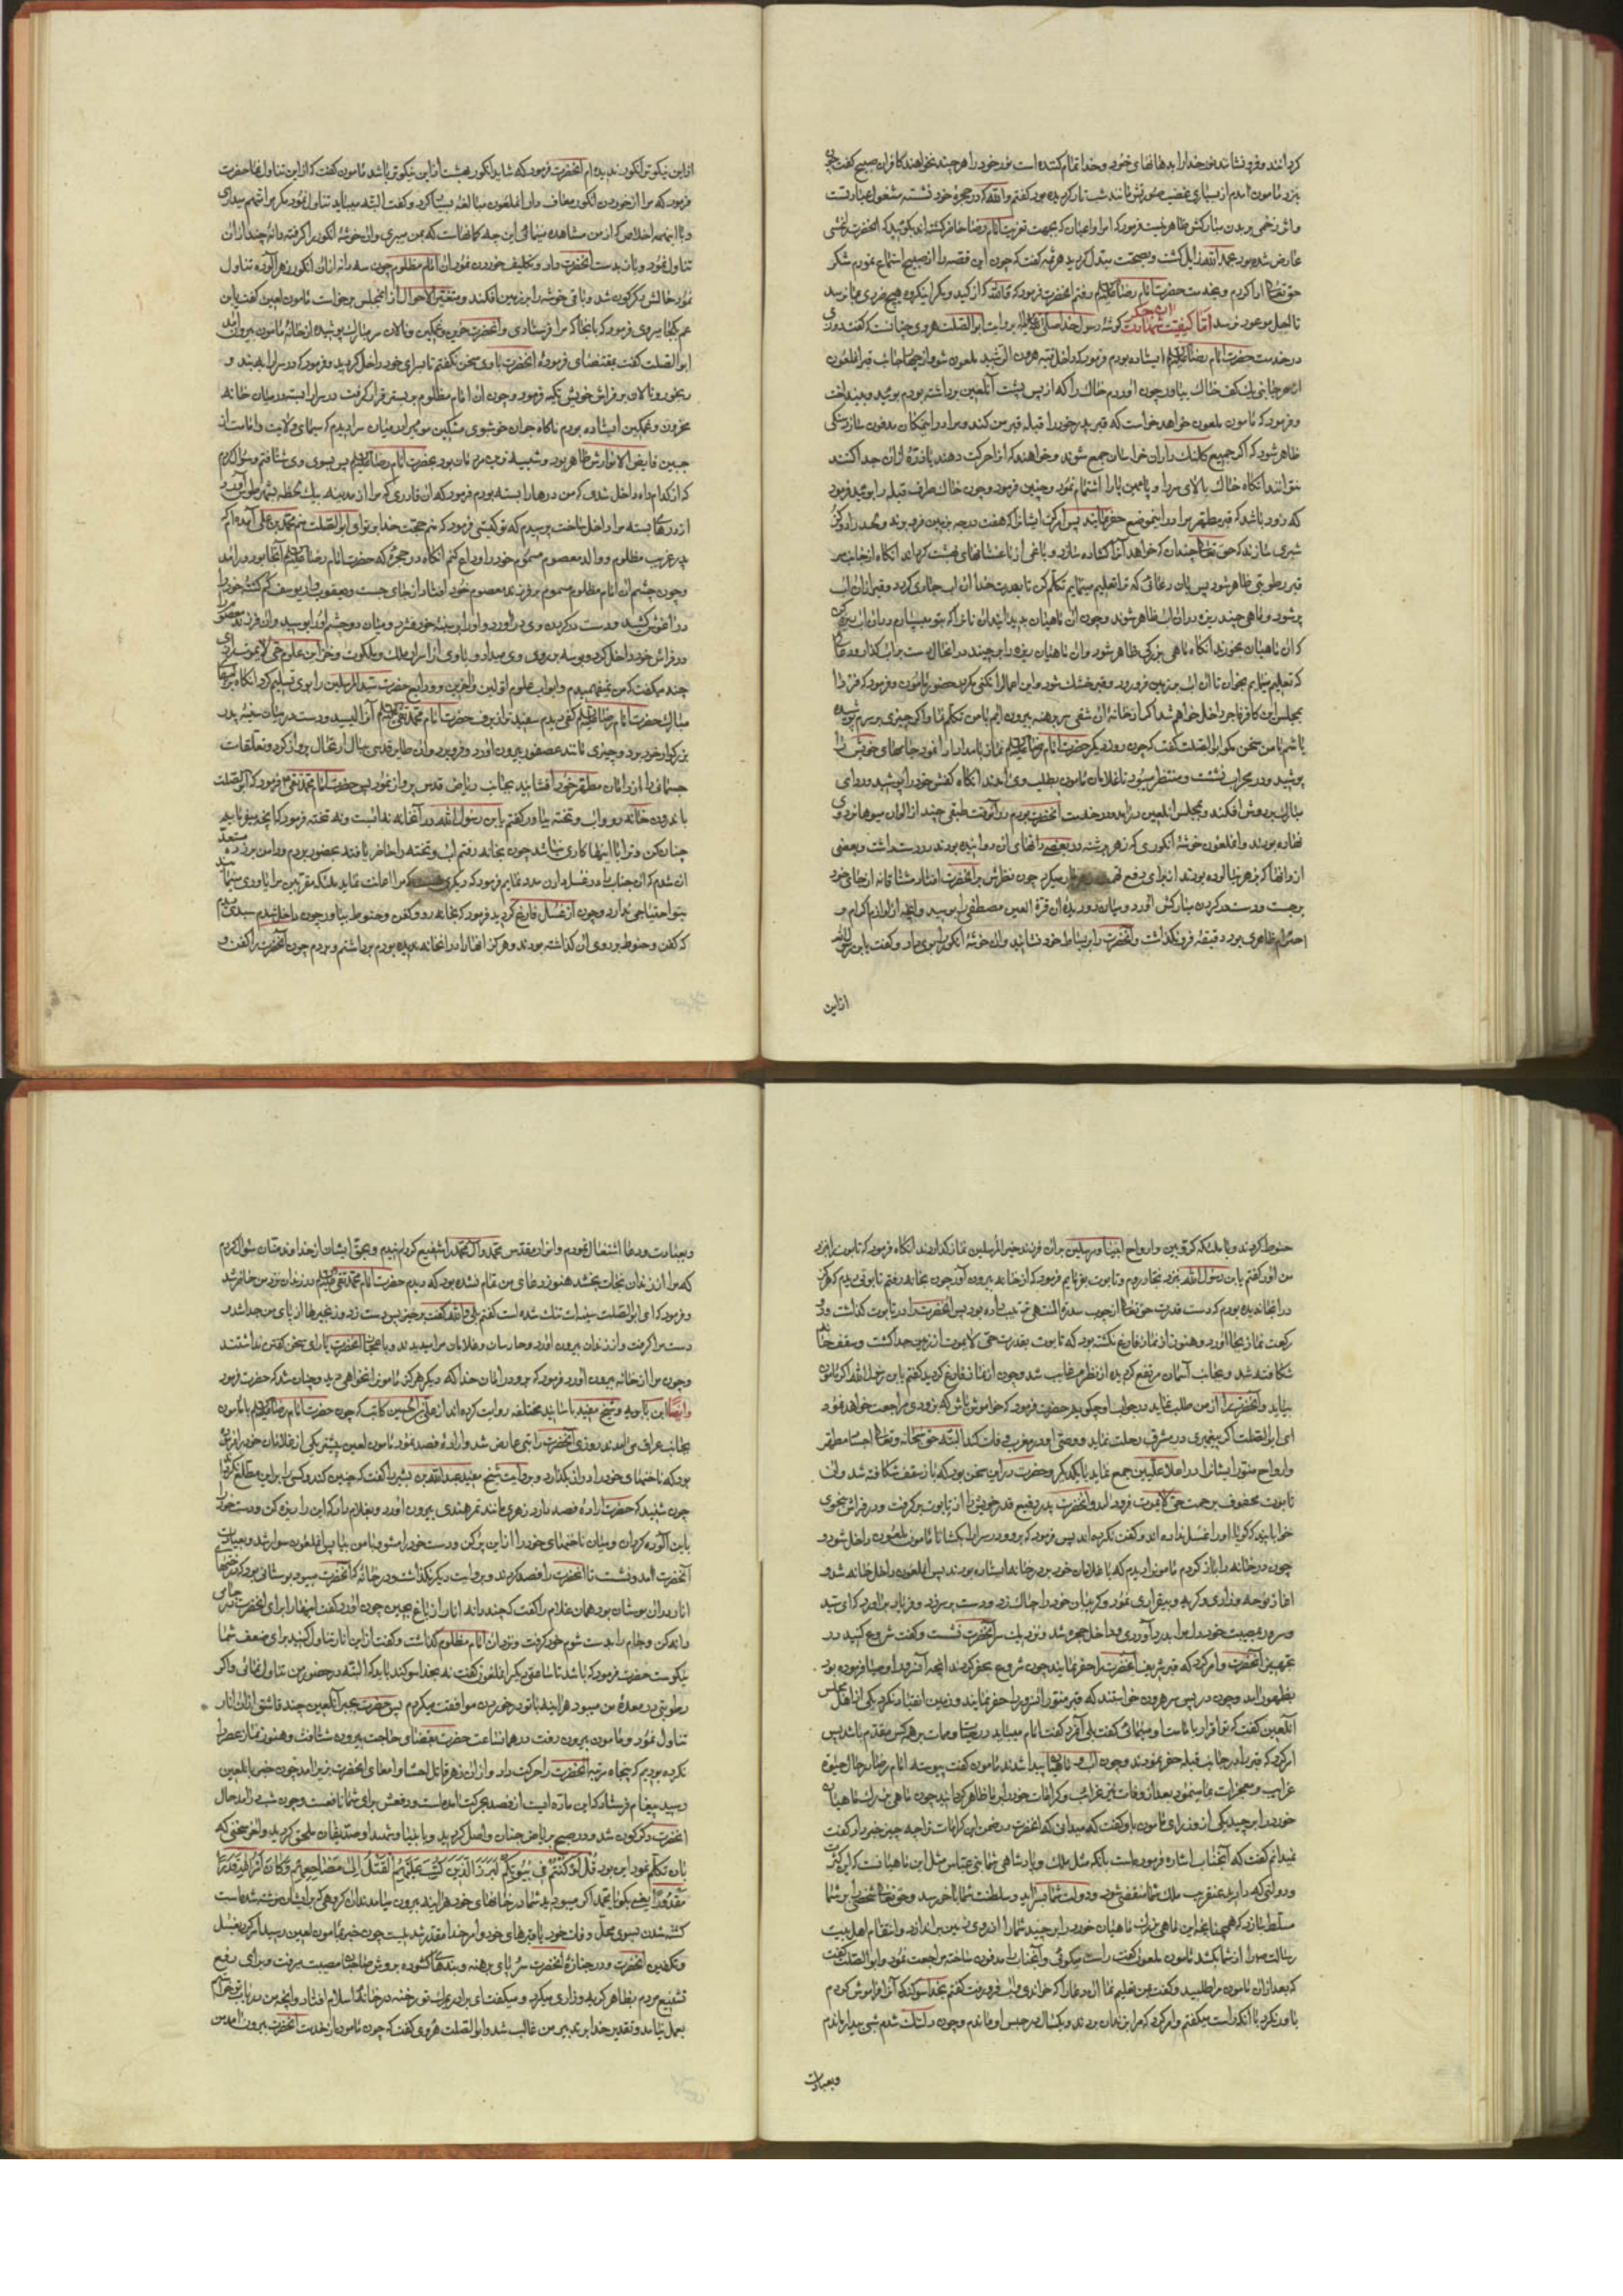 کردانند و فرو نشانند نور خدا را بدهانهای خود و خدا تمام کننده است نور خود را هر چند نخواهند کافران صبیح گفت چون
بنزد مامون آمدم از بسیاری غضب صورتش مانند شب تار کردیده بود گفتم والله که در حجرهٔ خود نشسته مشغول عبادتست
واثر زخمی بر بدن مبارکش ظاهر نیست فرمود که امرا و اعیان که بجهت تعزیت امام رضا حاضر کشته‌اند بکوئید که آنحضرت را غشی
عارض شده بود بحمد الله زایل کشت و بصحت مبدل کردید هرثمه گفت که چون این قصه را از صبیح استماع نمودم شکر
حق تعالی ادا کردم و بخدمت حضرت امام رضا علیه السلام رفتم آنحضرت فرمود که والله که از کید و مکر اینکروه هیچ ضرری بما نرسد
تا اجل موعود نرسد اما کیفیت شهادت آن جکر کوشهٔ رسول خدا بروایت ابو الصلت هروی چنانست که گفت روزی
در خدمت حضرت امام رضا علیه السلام ایستاده بودم فرمود که داخل قبهٔ هرون الرشید ملعون شو و از چهار جانب قبر آنملعون
از هر جانبی یک کف خاک بیاور چون آوردم خاک را که از پس پشت آنلعین برداشته بودم بوئید و بینداخت
و فرمود که مامون ملعون خواهد خواست که قبر پدر خود را قبله قبر من کند و مرا در اینمکان مدفون سازد سنکی
ظاهر شود که اکر جمیع کلنک داران خراسان جمع شوند و خواهند که آنرا حرکت دهند یا ذرهٔ از آن جدا کنند
نتوانند آنکاه خاک بالای سر را و پایین پا را استشمام نمود و چنین فرمود و چون خاک طرف قبله را بوئید فرمود
که زود باشد که قبر مطهر مرا در اینموضع حفر نمایند پس امر کن ایشانرا که هفت درجه بزمین فرو برند و لحد را دو کز
شبری سازند که حق تعالی چندان که خواهد آنرا کشاده سازد و باغی از باغستانهای بهشت کرداند آنکاه از جانب سر
قبر رطوبتی ظاهر شود پس بآن دعائی که ترا تعلیم مینمایم تکلم کن تا بقدرت خدا آن آب جاری کردد و قبر از آن آب
پر شود و ماهی چند ریزه در آن آب ظاهر شوند و چون آن ماهیان پدید آیند این نانرا که بتو میسپارم در آن آب ریزه کن
که آن ماهیان بخورند آنکاه ماهی بزرکی ظاهر شود و آن ماهیان ریزه را برچیند در آنحال دست بر آب کذار و دعائی
که تعلیم مینمایم بخوان تا آن آب بزمین فرو رود و قبر خشک شود و این اعمال را نکنی مکر در حضور مامون و فرمود که فردا
بمجلس این کافر فاجر داخل خواهم شد اکر از خانهٔ آن شقی سر برهنه بیرون آیم با من تکلم نما و اکر چیزی بر سرم پوشیده
باشم با من سخن مکو ابو الصلت گفت که چون روز دیکر حضرت امام رضا علیه السلام نماز بامداد ادا نمود جامهای خویش را
پوشید و در محراب نشست و منتظر میبود تا غلامان مامون بطلب وی آمدند آنکاه کفش خود را پوشید و ردای
مبارک بر دوش افکند و بمجلس آنلعین درآمد و در خدمت آنحضرت بودم در آنوقت طبقی چند از الوان میوها نزد وی
نهاده بودند و آنملعون خوشهٔ انکوری که زهر برشته در بعضی دانهای آن دوانیده بودند در دست داشت و بعضی
از دانها که بزهر نیالوده بودند از برای رفع تهمت زهر مار میکرد چون نظرش بر آنحضرت افتاد مشتاقانه از جای خود
برجست و دست در کردن مبارکش آورد و میان دو دیدهٔ آن قرة العین مصطفی را بوسید و آنچه از لوازم اکرام و
احترام ظاهری بود دقیقهٔ فرو نکذاشت و آنحضرت را بر بساط خود نشانید و آن خوشهٔ انکور را بوی داد و گفت یا بن رسول الله
از این
از این نیکوتر انکور ندیده‌ام آنحضرت فرمود که شاید انکور بهشت از این نیکوتر باشد مامون گفت که از این تناول نما حضرت
فرمود که مرا از خوردن انکور معاف دار آنملعون مبالغهٔ بسیار کرد و گفت البته میباید تناول نمود مکر مرا متهم میداری
و با اینهمه اخلاص که از من مشاهده مینمائی این چه کمانهاست که بمن میبری و آن خوشهٔ انکور را کرفته دانهٔ چند از آن
تناول نمود و باز بدست آنحضرت داد و تکلیف خوردن نمود آن امام مظلوم چون سه دانه از آن انکور زهر آلوده تناول
نمود حالش دکرکون شد و باقی خوشه را بر زمین افکند و متغیر الاحوال از آنمجلس برخواست مامون لعین گفت یا بن
عم بکجا میروی فرمود که بآنجا که مرا فرستادی و آنحضرت حزین و غمکین و نالان سر مبارک پوشیده از خانهٔ مامون بیرون آمد
ابو الصلت گفت بمقتضای فرمودهٔ آنحضرت با وی سخن نکفتم تا بسرای خود داخل کردید و فرمود که در سرا را به بند و
رنجور و نالان بر فراش خویش تکیه فرمود و چون آن امام مظلوم بر بستر قرار کرفت در سرا را بسته در میان خانه
محزون و غمکین ایستاده بودم ناکاه جوان خوشبوی مشکین موئیرا در میان سرا دیدم که سیمای ولایت و امامت از
جبین فایض الانوارش ظاهر بود و شبیه ترین مردمان بود بحضرت امام رضا علیه السلام پس بسوی وی شتافتم و سؤال کردم
که از کدام راه داخل شدی که من درها را بسته بودم فرمود که آن قادری که مرا از مدینه بیک لحظه بشهر طوس آورد
از درهای بسته مرا داخل ساخت پرسیدم که تو کیستی فرمود که منم حجت خدا بر تو ای ابو الصلت منم محمد بن علی آمده‌ام که
پدر غریب مظلوم و والد معصوم مسموم خود را وداع کنم آنکاه در حجرهٔ که حضرت امام رضا علیه السلام آنجا بود درآمد
و چون چشم آن امام مظلوم مسموم بر فرزند معصوم خود افتاد از جای جست و یعقوب‌وار یوسف کم کشتهٔ خود را
در آغوش کشید و دست در کردن وی درآورد و او را بر سینهٔ خود فشرد و میان دو چشم او را بوسید و آن فرزند معصوم را
در فراش خود داخل کرد و بوسه بر روی وی میداد و با وی از اسرار ملک و ملکوت و خزاین علوم حی لا یموت رازی
چند میگفت که من نمیفهمیدم و ابواب علوم اولین و آخرین و ودایع حضرت سید المرسلین را بوی تسلیم کرد آنکاه بر لبهای
مبارک حضرت امام رضا علیه السلام کفی دیدم سفیدتر از برف حضرت امام محمد تقی علیه السلام آنرا لیسید و دست در میان سینهٔ پدر
بزرکوار خود برد و چیزی مانند عصفور بیرون آورد و فرو برد و آن طایر قدسی ببال ارتحال پرواز کرد و تعلقات
جسمانی را از دامان مطهر خود افشانیده بجانب ریاض قدس پرواز نمود پس حضرت امام محمد تقی فرمود که ای ابو الصلت
باندرون خانه رو و آب و تخته بیاور گفتم یابن رسول الله در آنخانه نه آبست و نه تخته فرمود که آنچه میفرمایم
چنان کن و ترا باینها کاری نباشد چون بخانه رفتم آب و تخته را حاضر یافتم بحضور بردم و دامن بر زده مستعد
آن شدم که آن جناب را در غسل دادن مدد نمایم فرمود که دیکری هست که مرا اعانت نماید ملئکه مقربین مرا یاوری مینمایند
بتو احتیاجی ندارم و چون از غسل فارغ کردید فرمود که بخانه رو و کفن و حنوط بیاور چون داخل شدم سبدی دیدم
که کفن و حنوط بر روی آن کذاشته بودند و هرکز آنها را در آنخانه ندیده بودم برداشتم و بردم چون آنحضرت را کفن و
حنوط کردند و با ملئکه کروبین و ارواح انبیا و مرسلین بر آن فرزند خیر المرسلین نماز کذاردند آنکاه فرمود که تابوت را بنزد
من آور گفتم یابن رسول الله بنزد نجار روم و تابوت بفرمایم فرمود که از خانه بیرون آور چون بخانه رفتم تابوتی دیدم که هرکز
در آنجا ندیده بودم که دست قدرت حق تعالی از چوب سدرة المنتهی ترتیب داده بود پس آنحضرت را در تابوت کذاشت و دو
رکعت نماز بجا آورد و هنوز از نماز فارغ نکشته بود که تابوت بقدرت حی لا یموت از زمین جدا کشت و سقف خانه
شکافته شد و بجانب آسمان مرتفع کردیده از نظرم غایب شد و چون از نماز فارغ کردید گفتم یابن رسول الله اکر مامون
بیاید و آنحضرت را از من طلب نماید در جواب او چکویم حضرت فرمود که خاموش باش که بزودی مراجعت خواهد نمود
ای ابو الصلت اکر پیغمبری در مشرق رحلت نماید و وصی او در مغرب وفات کند البته حق سبحانه و تعالی اجساد مطهر
و ارواح منور ایشانرا در اعلا علیین جمع نماید با یکدیکر و حضرت در این سخن بود که باز سقف شکافته شد و آن
تابوت محفوف برحمت حی لا یموت فرود آمد و آنحضرت پدر رفیع قدر خویش را از تابوت برکرفت و در فراش بنحوی
خوابانید که کویا او را غسل نداده‌اند و کفن نکرده‌اند پس فرمود که برو و در سرا را بکشا تا مامون ملعون داخل شود
چون در خانه را باز کردم مامونرا دیدم که با غلامان خود بر در خانه ایستاده بودند پس آنملعون داخل خانه شد و
آغاز نوحه و زاری و کریه و بیقراری نمود و کریبان خود را چاک زد و دست بر سر زد و فریاد برآورد که ای سید
و سرور در مصیبت خود دل مرا بدرد آوردی و داخل حجره شد و نزدیک سر آنحضرت نشست و گفت شروع کنید در
تجهیز آنحضرت و امر کرد که قبر شریف آنحضرت را حفر نمایند چون شروع بحفر کردند آنچه آن سرور اوصیا فرموده بود
بظهور آمد و چون در پس سر هرون خواستند که قبر منور آنسرور را حفر نمایند زمین انقیاد نکرد یکی از اهل مجلس
آنلعین گفت که تو اقرار بامامت او مینمائی گفت بلی آنمرد گفت امام میباید در حیات و ممات بر همه کس مقدم باشد پس
امر کرد که قبر را در جانب قبله حفر نمودند و چون آب و ماهیان پیدا شدند مامون گفت پیوسته امام رضا در حال حیوة
غرایب و معجزات بما مینمود بعد از وفات نیز غرائب و کرامات خود را بر ما ظاهر کردانید چون ماهی بزرک ماهیان
خورد را برچید یکی از وزرای مامون باو گفت که میدانی که آنحضرت در ضمن این کرامات ترا بچه چیز خبر داد گفت
نمیدانم گفت که آنجناب اشاره فرموده است بآنکه مثل ملک و پادشاهی شما بنی عباس مثل این ماهیانست که این کثرت
و دولتی که دارید عنقریب ملک شما منقضی شود و دولت شما بسر آید و سلطنت شما بآخر رسد و حق تعالی شخصی را بر شما
مسلط سازد که همچنانکه این ماهی بزرک ماهیان خورد را برچید شما را از روی زمین براندازد و انتقام اهل بیت
رسالت را از شما بکشد مامون ملعون گفت راست میکوئی و آنجناب را مدفون ساخته مراجعت نمود و ابو الصلت گفت
که بعد از آن مامون مرا طلبید و گفت بمن تعلیم نما آن دعا را که خواندی و آب فرو رفت گفتم بخدا سوکند که آنرا فراموش کردم
باور نکرد با آنکه راست میگفتم و امر کرد که مرا بزندان بردند و یکسال در حبس او ماندم و چون دلتنک شدم شبی بیدار ماندم
و بعبادت
و بعبادت و دعا اشتغال نمودم و انوار مقدس محمد و آل محمد را شفیع کردانیدم و بحق ایشان از خداوند منان سؤال کردم
که مرا از زندان نجات بخشد هنوز دعای من تمام نشده بود که دیدم حضرت امام محمد تقی علیه السلام در زندان نزد من حاضر شد
و فرمود که ای ابو الصلت سینه‌ات تنک شده است گفتم بلی والله گفت برخیز پس دست زد و زنجیرها از پای من جدا شد و
دست مرا کرفت و از زندان بیرون آورد و حارسان و غلامان مرا میدیدند و باعجاز آنحضرت یارای سخن گفتن نداشتند
و چون مرا از خانه بیرون آورد فرمود که برو در امان خدا که دیکر هرکز مامونرا نخواهی دید و چنان شد که حضرت فرمود
و ایضا ابن بابویه و شیخ مفید باسانید مختلفه روایت کرده‌اند از علی بن الحسین کاتب که چون حضرت امام رضا علیه السلام با مامون
بجانب عراق می‌آمدند روزی آنحضرت را تبی عارض شد و ارادهٔ فصد نمود مامون لعین پیشتر یکی از غلامان خود را فرموده
بود که ناخنهای خود را دراز بکذارد و بروایت شیخ مفید عبد الله بن بشیر را گفت که چنین کند و کسی را بر این مطلع نکرداند
چون شنید که حضرت ارادهٔ فصد دارد زهری مانند تمر هندی بیرون آورد و بغلام داد که این را ریزه کن و دست خود را
باین آلوده کردان و میان ناخنهای خود را از این پر کن و دست خود را مشو و با من بیا پس آنملعون سوار شد و بعیادت
آنحضرت آمد و نشست تا آنحضرت را فصد کردند و بروایت دیکر نکذاشت و در خانهٔ که آنحضرت میبود بوستانی بود که درختهای
انار در آن بوستان بود همان غلام را گفت که چند دانه انار از باغ بچین چون آورد گفت اینها را برای آنحضرت در جامی
دانه کن و جام را بدست شوم خود کرفت و نزد آن امام مظلوم کذاشت و گفت از این انار تناول کنید برای ضعف شما
نیکوست حضرت فرمود که باشد تا ساعتی دیکر آنملعون گفت نه بخدا سوکند باید که البته در حضور من تناول نمائی و اکر
رطوبتی در معدهٔ من نمیبود هر آینه با تو در خوردن موافقت میکردم پس حضرت بجبر آنلعین چند قاشق از آن انار
تناول نمود و مامون بیرون رفت در همانساعت حضرت بقضای حاجت بیرون شتافت و هنوز نماز عصر را
نکرده بودیم که پنجاه مرتبه آنحضرت را حرکت داد و از آن زهر قاتل احشا و امعای آنحضرت بزیر آمد چون خبر بآنلعین
رسید پیغام فرستاد که این ماده‌ایست از فصد بحرکت آمده است و دفعش برای شما نافعست و چون شب درآمد حال
آنحضرت دکرکون شد و در صبح بریاض جنان واصل کردید و بانبیا و شهدا و صدیقان ملحق کردید و آخر سخنی که
بآن تکلم نمود این بود قُل لَوْ كُنْتُمْ فِي بُيُوتِكُمْ لَبَرَزَ الَّذِينَ كُتِبَ عَلَيْهِمُ الْقَتْلُ إِلَى مَضَاجِعِهِمْ وَكَانَ أَمْرُ اللَّهِ قَدَرًا
مَقْدُورًا یعنی بکو یا محمد اکر میبودید شما در خانهای خود هر آینه بیرون می‌آمدند آن کروهی که بر ایشان نوشته شده است
کشته شدن بسوی محل وفات خود یا قبرهای خود و امر خدا مقدر شدنیست چون خبر بمامون لعین رسید امر کرد بغسل
و تکفین آنحضرت و در جنازهٔ آنحضرت سر و پای برهنه و بندها کشوده بروش صاحب مصیبت میرفت و برای رفع
تشنیع مردم بظاهر کریه و زاری میکرد و میگفت ای برادر بمرک تو رخنه در خانهٔ اسلام افتاد و آنچه من در باب تو میخواستم
بعمل نیامد و تقدیر خدا بر تدبیر من غالب شد و ابو الصلت هروی گفت که چون مامون از خدمت آنحضرت بیرون آمد من